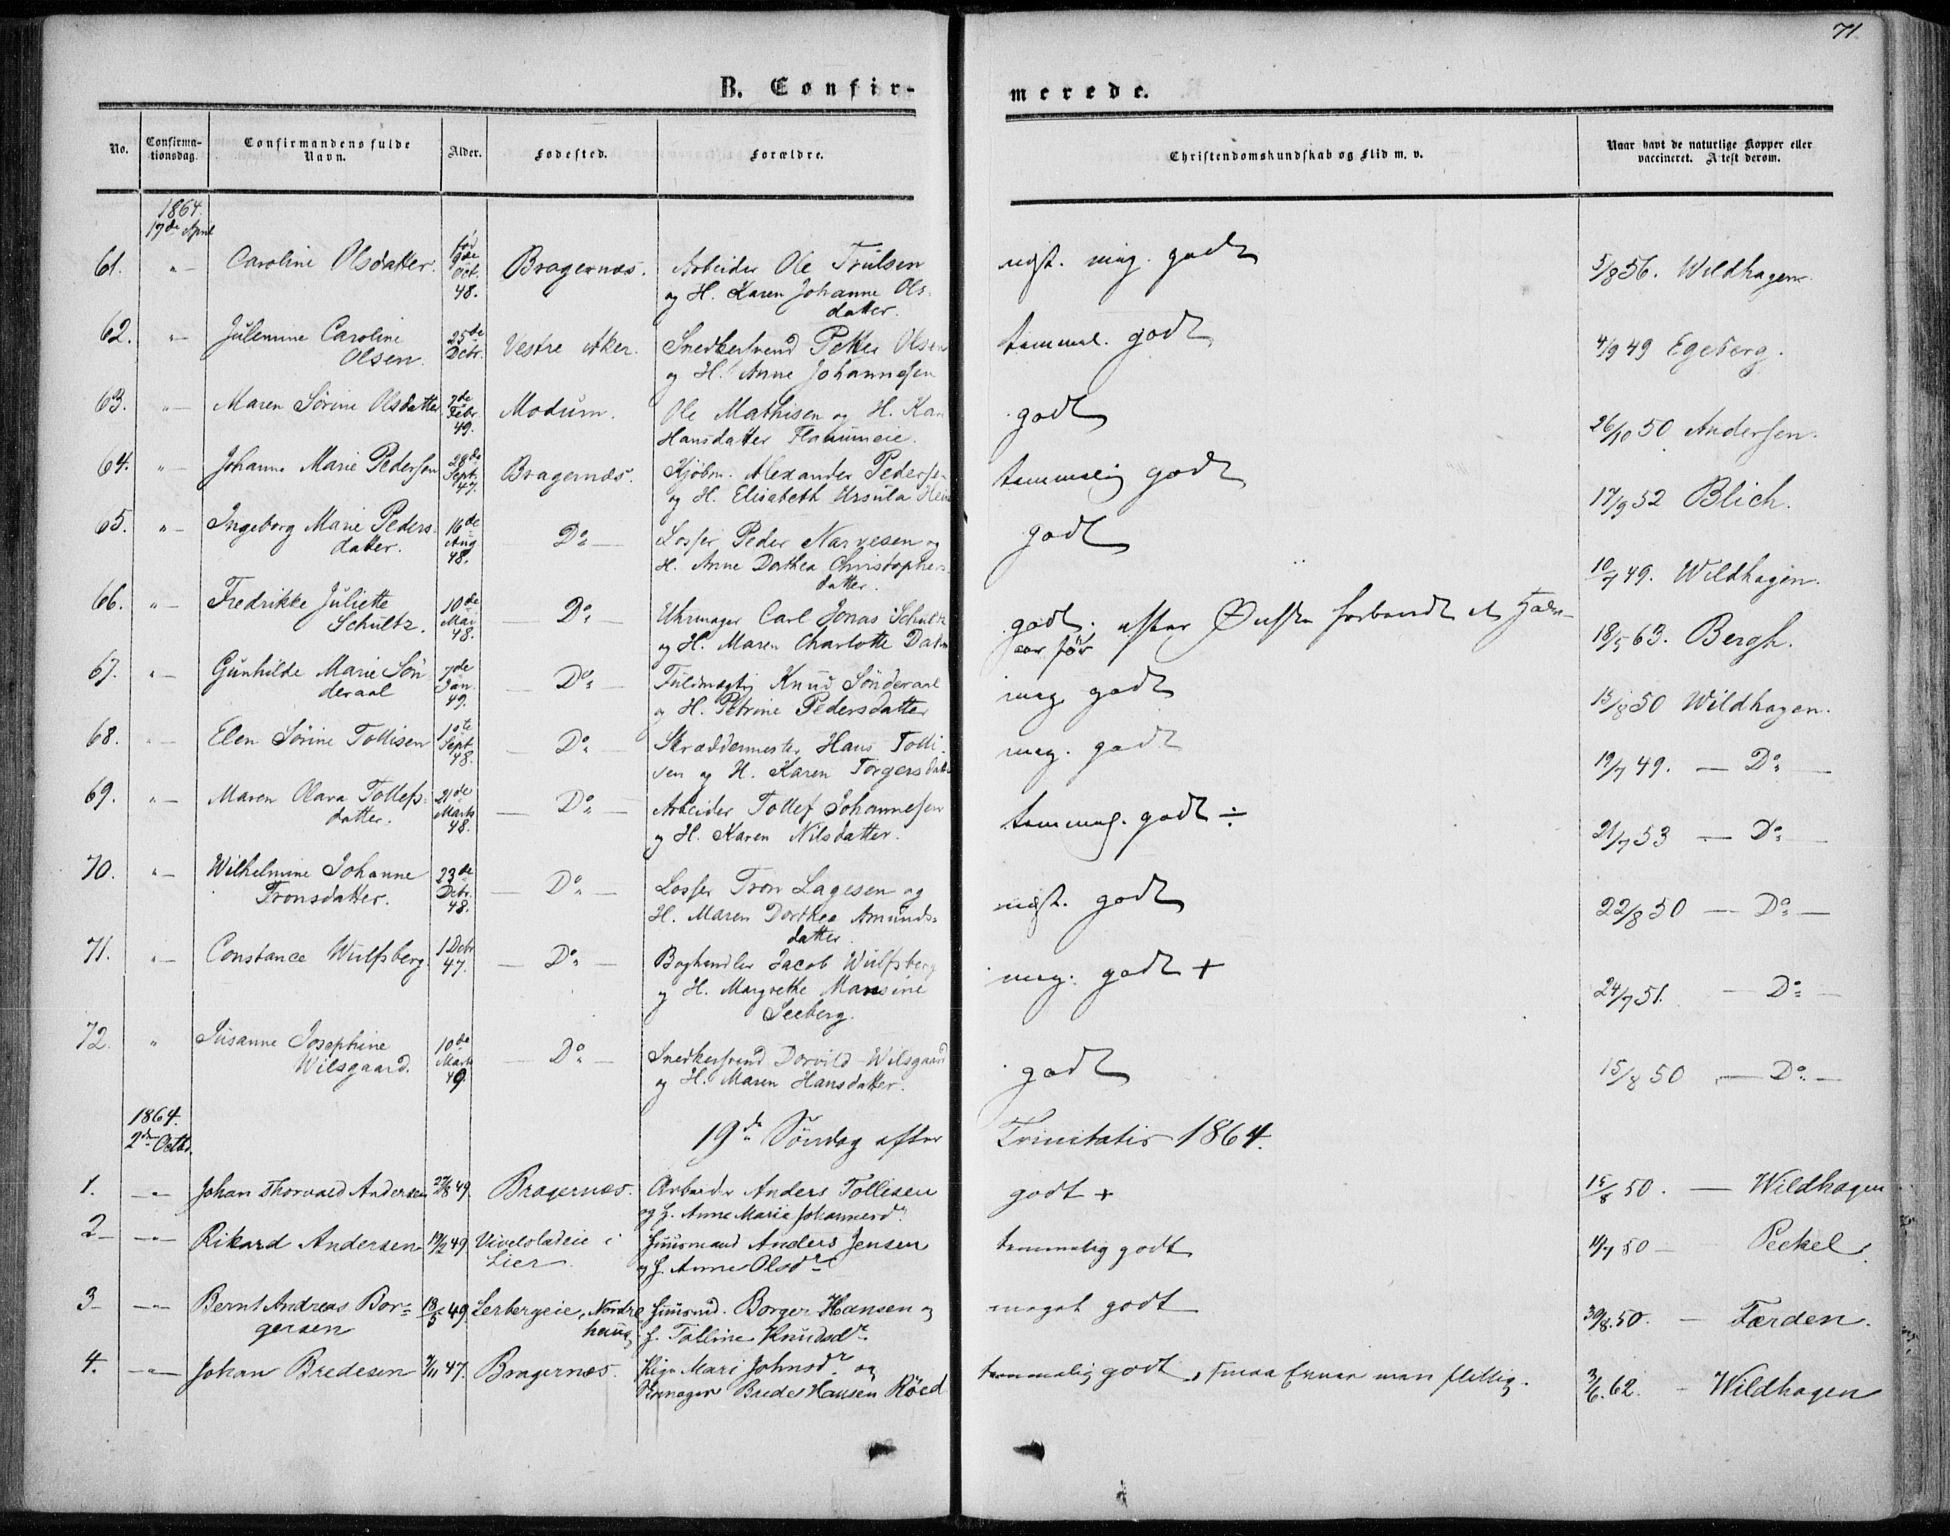 71
B. Confir-
merede.
No.
Confirma-
tionsdag.
Confirmandens fulde
Navn.
Alder.
Fødested.
Forældre.
Christendomskundskab og Flid m. v.
Naar havt de naturlige Kopper eller
vaccineret. Attest derom.
1864.
17de April
61. " Caroline Olsdatter. 9de Oct. 48. Bragernæs. Arbeider Ole Trulsen
og H. Karen Johanne Ols-
datter.
megt. godt 5/8 56. Wildhagen.
62. " Julemine Caroline
Olsen. 25de Debr. Vestre Aker. Snedkersvend Petter Olsen
og H. Anne Johannesen
temmel. godt 4/9 49 Egeberg.
63. " Maren Sørine Olsdatter 7de Febr. 49. Modum. Ole Mathisen og H. Kari
Hansdatter
godt 26/10 50 Andersen.
64. " Johanne Marie Pedersen 28de Sept. 47. Bragernæs. Kjøbm. Alexander Pedersen
og H. Elisabeth Ursula
temmelig godt 17/9 52 Blich.
65. " Ingeborg Marie Peders-
datter. 16de Aug 48. Do Losser Peder Narvesen og
H. Anne Dorthea Christopher-
datter.
godt 10/7 49. Wildhagen.
66. " Fredrikke Juliette
Schultz. 10de Mai 48. Do Uhrmager Carl Jonas Schultz
og H. Maren Charlotte
godt. efter Ønske forbendt et Halv-
aar før 18/5 63. Bergh.
67. " Gunhilde Marie Søn
deraal 7de Jan. 49. Do Fuldmægtig Knud Sønderaal
og H. Petrine Pedersdatter
meg. godt 15/8 50 Wildhagen.
68. " Elen Sørine Tollisen 10te Sept. 48. Do Skræddermester Hans Tolli-
sen og H. Karen Torgersdatter
meg. godt 19/7 49. Do
69. " Maren Olava Tollefs-
datter. 21de Marts 48. Do Arbeider Tollef Johannesen
og H. Karen Nilsdatter.
temmel. godt ÷ 21/7 53 Do
70. " Wilhelmine Johanne
Tronsdatter. 23de Debr. 48. Do Losser Tron Lagesen og
H. Maren Dorthea Amunds-
datter.
megt. godt 22/8 50 Do
71. " Constance Wulfsberg. 1 Debr 47. Do Boghandler Jacob Wulfsberg
og H. Margrethe Mansine
Seeberg.
meg. godt + 24/7 51. Do
72. " Susanne Josephine
Wilsgaard. 10de Marts 49. Do Snedkersvend Dorvild Wilsgaard
og H. Maren Hansdatter.
godt 15/8 50 Do
1864.
2den Octbr. 19de Søndag efter Trinitatis 1864.
1. " Johan Thorvald Andersen 27/8 49. Bragernæs. Arbeider Anders Tollisen
og H. Anne Marie Johannesdr
godt + 15/8 50. Wildhagen
2 " Rikard Andersen 19/2 49 Vivelsladeie i
Lier Huusmand Anders Jensen
og H. Anne Olsdr
temmelig godt 11/7 50 Peckel.
3 " Bernt Andreas Bor-
gersen 18/5 49 Lerbergeie, Nordre
houg. Huusmd. Borger Hansen og
H. Talline Knudsdr
meget godt 30/8.50. Færden.
4. " Johan Bredesen 9/11 47. Bragernæs. Pige Mari Johnsdr og
Brede Hansen Røed
temmelig godt, smaa Evner men flittig. 3/6.62. Wildhagen